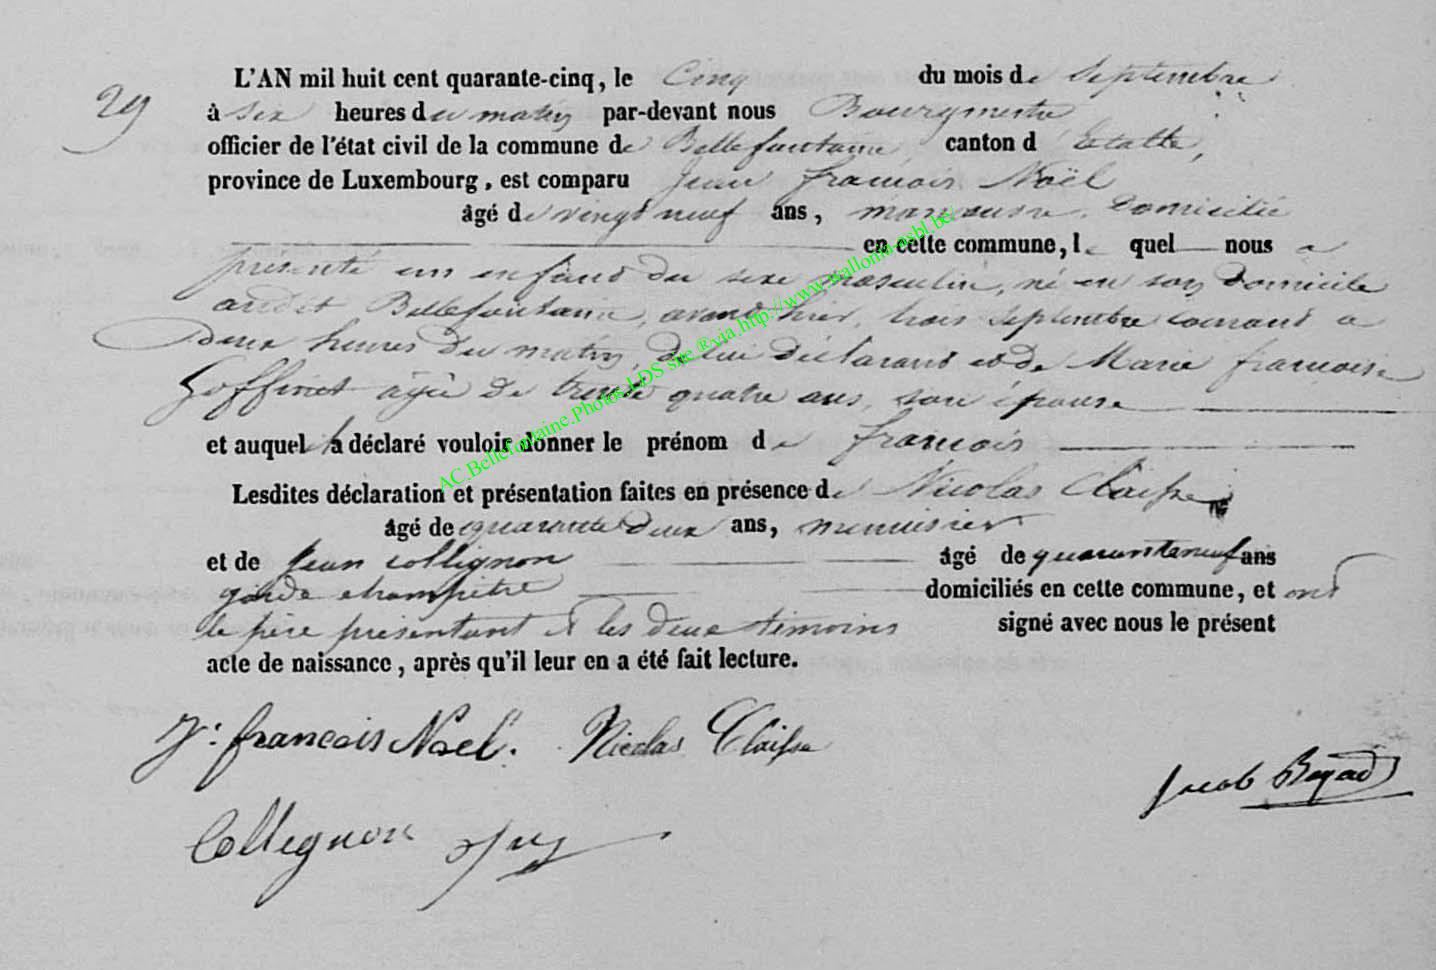 29
L'AN mil huit cent quarante-cinq, le Cinq du mois de Septembre
à six heures du matin par-devant nous Bourgmestre
officier de l'état civil de la commune de Bellefontaine, canton d'Etalle,
province de Luxembourg, est comparu Jean francois Noël
âgé de vingt neuf ans, manœuvre, domicilié
en cette commune, le quel nous a
présenté un enfant du sexe masculin, né en son domicile
audit Bellefontaine, avant hier, trois Septembre courant a
deux heures du matin, de lui déclarant et de Marie francoise
Goffinet agée de trente quatre ans, son épouse
et auquel il a déclaré vouloir donner le prénom de francois
Lesdites déclaration et présentation faites en présence de Nicolas Claisse
âgé de quarante deux ans, menuisier
et de Jean collignon âgé de quaranteneuf ans
garde champêtre domiciliés en cette commune, et ont
le père présentant et les deux témoins signé avec nous le présent
acte de naissance, après qu'il leur en a été fait lecture.
J: francois Noel. Nicolas Claisse
Jacob Bayard
Collignon
AC.Bellefontaine.Photos LDS site ®via.http://www.wallonia-asbl.be/